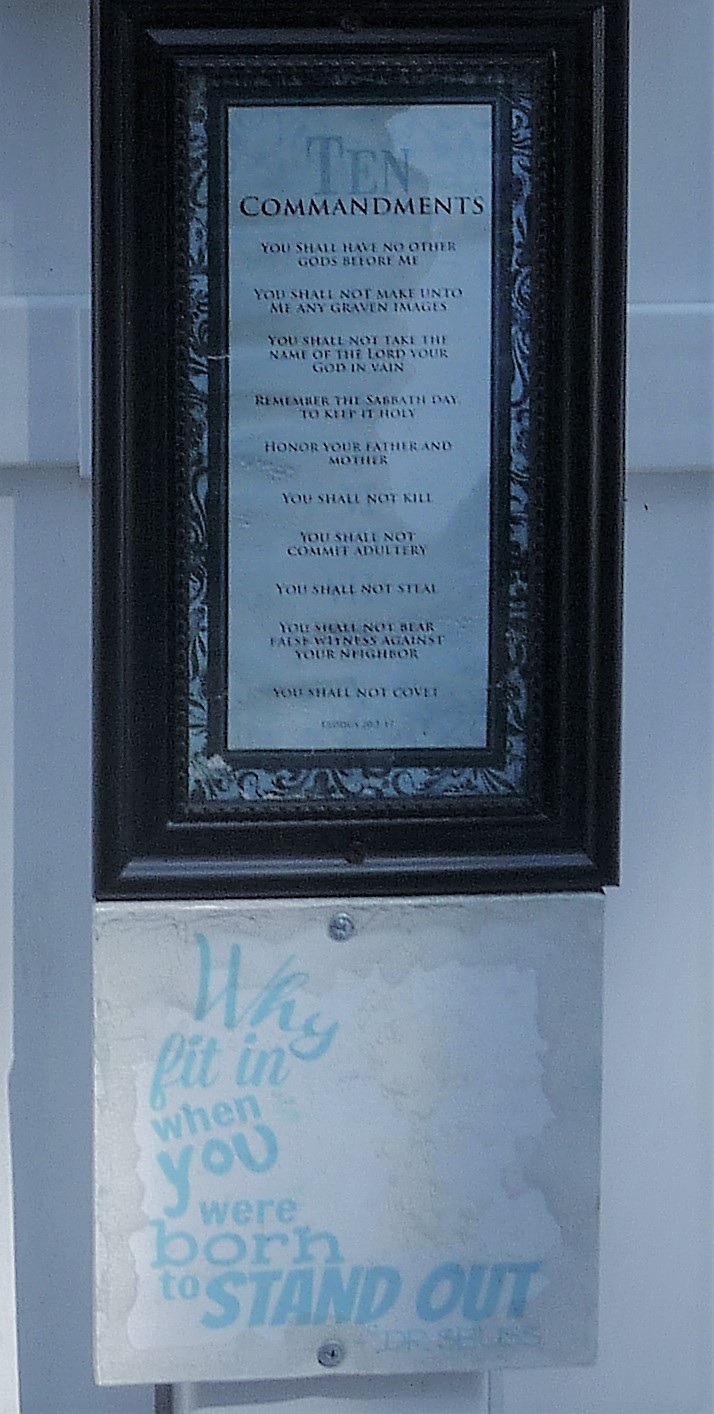 TEN
COMMANDMENTS
YOU SHALL HAVE NO OTHER
GODS BEFORE ME
YOU SHALL NOT MAKE UNTO
ME ANY GRAVEN IMAGES
YOU SHALL NOT TAKE THE
NAME OF THE LORD YOUR
GOD IN VAIN
REMEMBER THE SABBATH DAY,
TO KEEP IT HOLY
HONOR YOUR FATHER AND
MOTHER
YOU SHALL NOT KILL
YOU SHALL NOT
COMMIT ADULTERY
YOU SHALL NOT STEAL
YOU SHALL NOT BEAR
FALSE WITNESS AGAINST
YOUR NEIGHBOR
YOU SHALL NOT COVET
EXODUS 20:3-17
Why
fit in
when
you
were
born
to STAND OUT
DR. SEUSS